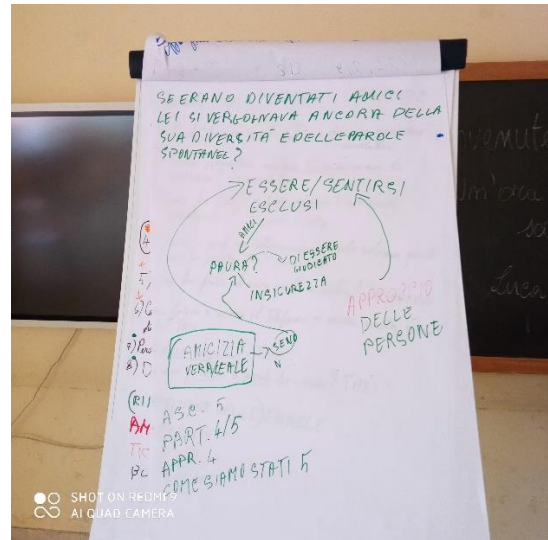 SE ERANO DIVENTATI AMICI
LEI SI VERGOGNAVA ANCORA DELLA
SUA DIVERSITÀ E DELLE PAROLE
SPONTANEE?
ESSERE/SENTIRSI
ESCLUSI
AMICI
PAURA?
DI ESSERE
GIUDICATO
INSICUREZZA
APPROCCIO
DELLE
PERSONE
AMICIZIA
VERA/LEALE
SE NO
N
4
5,
6)
7) Per
8) D
(RI
AM
TIC
ASC. 5
PART. 4/5
APPR. 4
COME SIAMO STATI 5
venut
un'ora
Luca
SHOT ON REDMI 9
AI QUAD CAMERA